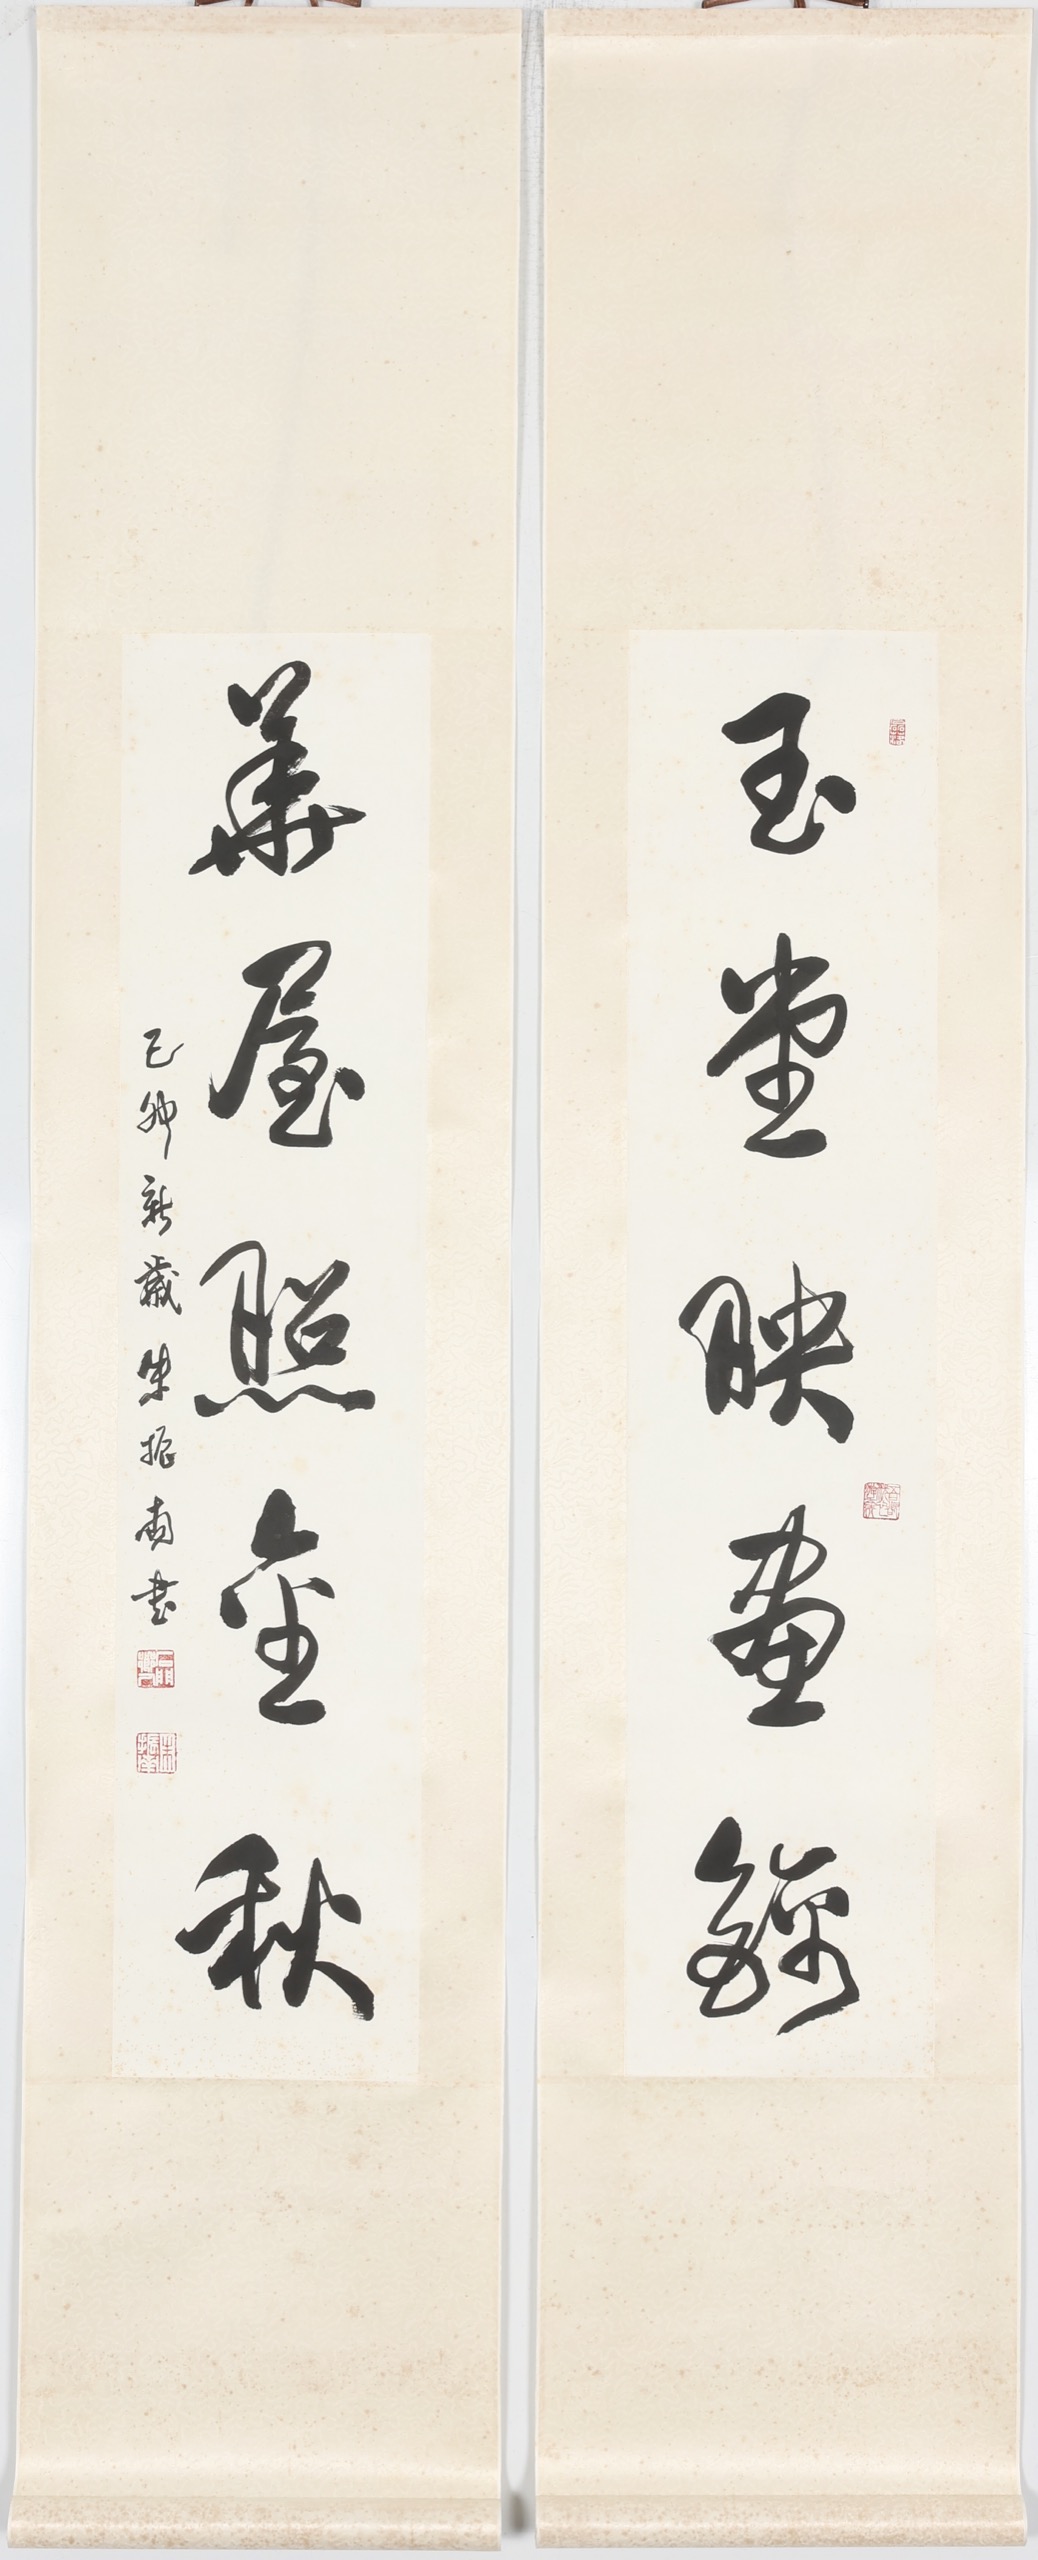 玉堂映畫錦
華屋照金秋
己卯新歲朱振南書